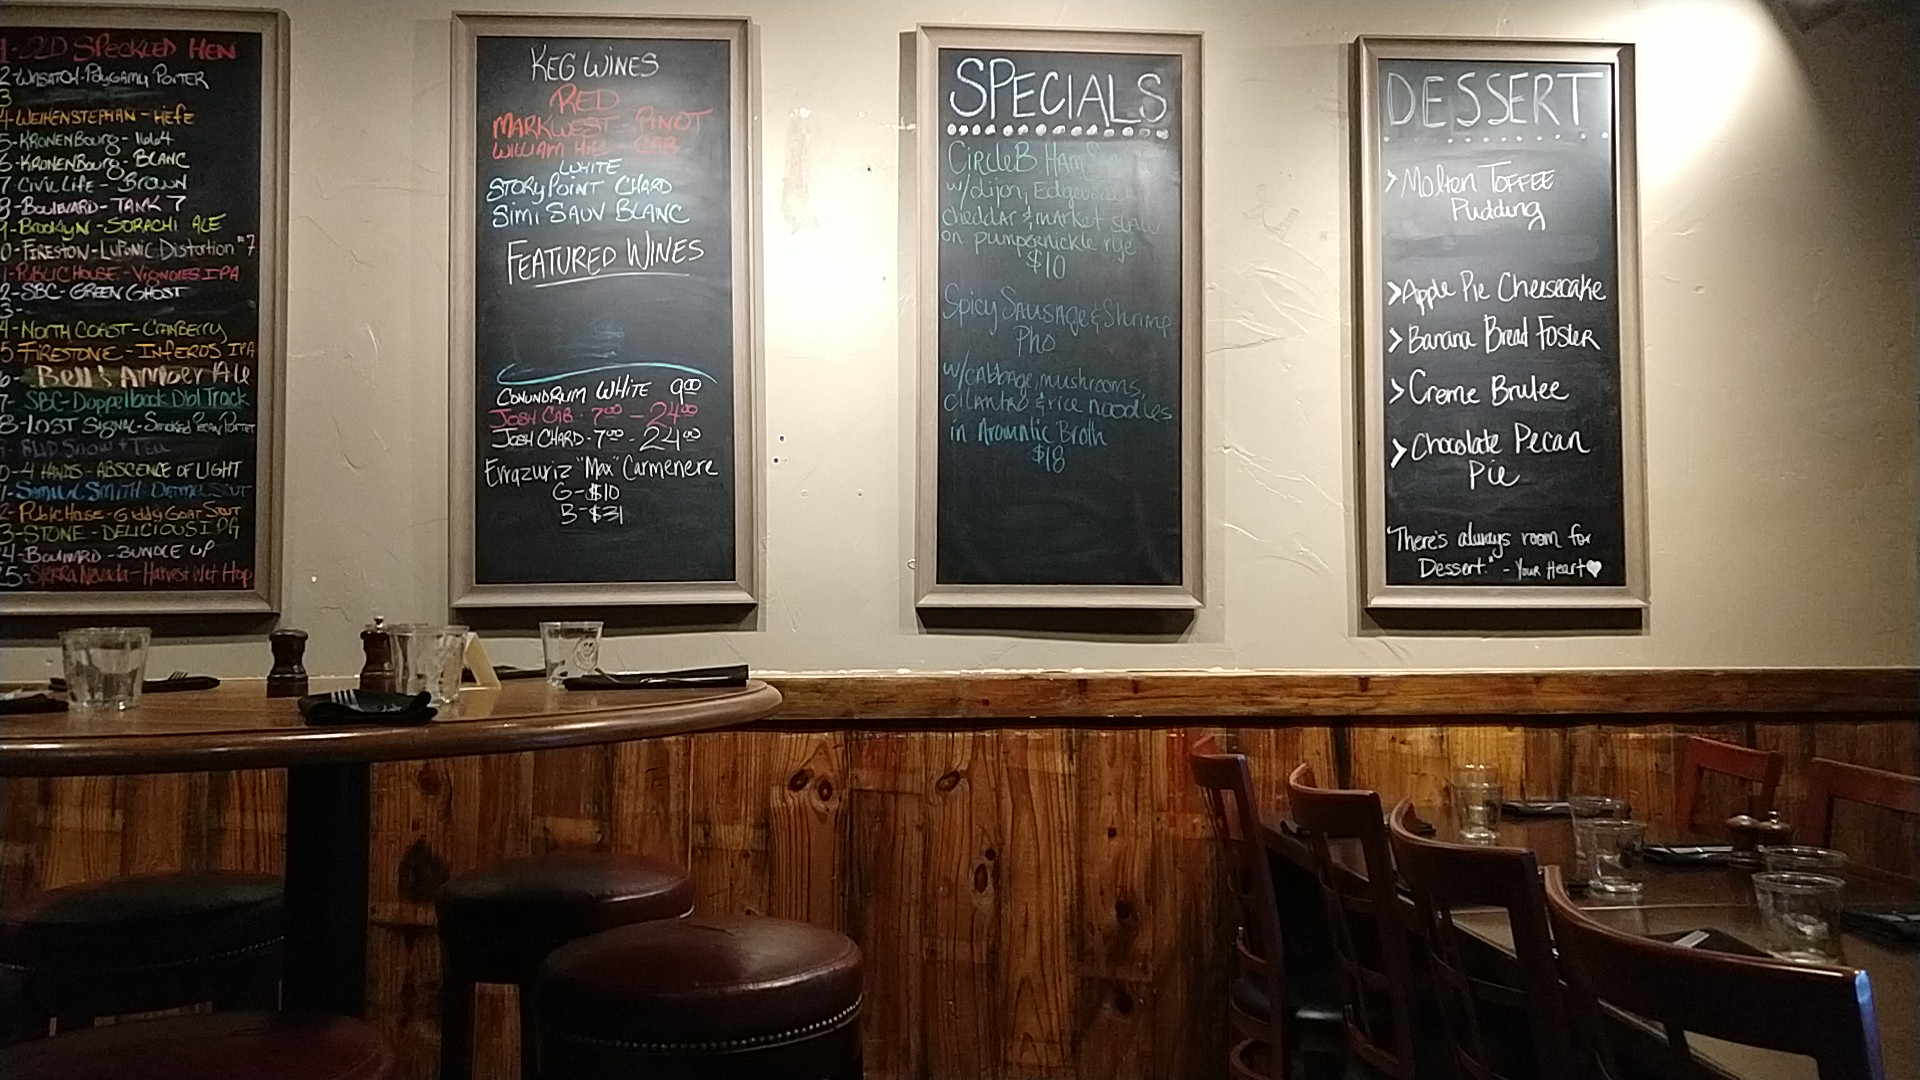 1-OLD SPECKLED HEN
2-WASATCH-POLYGAMY PORTER
3
4-WEIHENSTEPHAN-HEFE
5-KRONENBOURG-1664
6-KRONENBOURG-BLANC
7 CIVIL LIFE-BROWN
8-BOULEVARD-TANK 7
9-BROOKLYN-SORACHI ALE
0-FIRESTON-LUPONIC DISTORTION #7
1-PUBLIC HOUSE-VIGNOLES IPA
2-SBC-GREEN GHOST
3-
4-NORTH COAST-CRANBERRY
5 FIRESTONE-INFEROS IPA
6- Bell's Amber Ale
7- SBC-Doppelbock Dbl Track
8-LOST SIGNAL-Smoked Pecan Porter
BLVD SNOW & TELL
0-4 HANDS-ABSCENCE OF LIGHT
1-SAMUEL SMITH-OATMEAL STOUT
2-Public House-Giddy Goat Stout
3-STONE-DELICIOUS IPA
4-BOULEVARD-BUNDLE UP
25-Sierra Nevada-Harvest Wet Hop
KEG WINES
RED
MARKWEST-PINOT
WILLIAM HILL-CAB
WHITE
STORYPOINT CHARD
SIMI SAUV BLANC
FEATURED WINES
CONUNDRUM WHITE 9.00
JOSH CAB-7.00-24.00
JOSH CHARD-7.00-24.00
Errazuriz "Max" Carmenere
G-$10
B-$31
SPECIALS
CircleB Ham
w/dijon, Edgewood
cheddar & market slaw
on pumpernickle rye
$10
Spicy Sausage & Shrimp
Pho
w/cabbage, mushrooms,
cilantro & rice noodles
in Aromantic Broth
$18
DESSERT
> Molten TOFFEE
Pudding
> Apple Pie Cheesecake
> Banana Bread Foster
> Creme Brulee
> Chocolate Pecan
Pie
"There's always room for
Dessert." - Your Heart♥